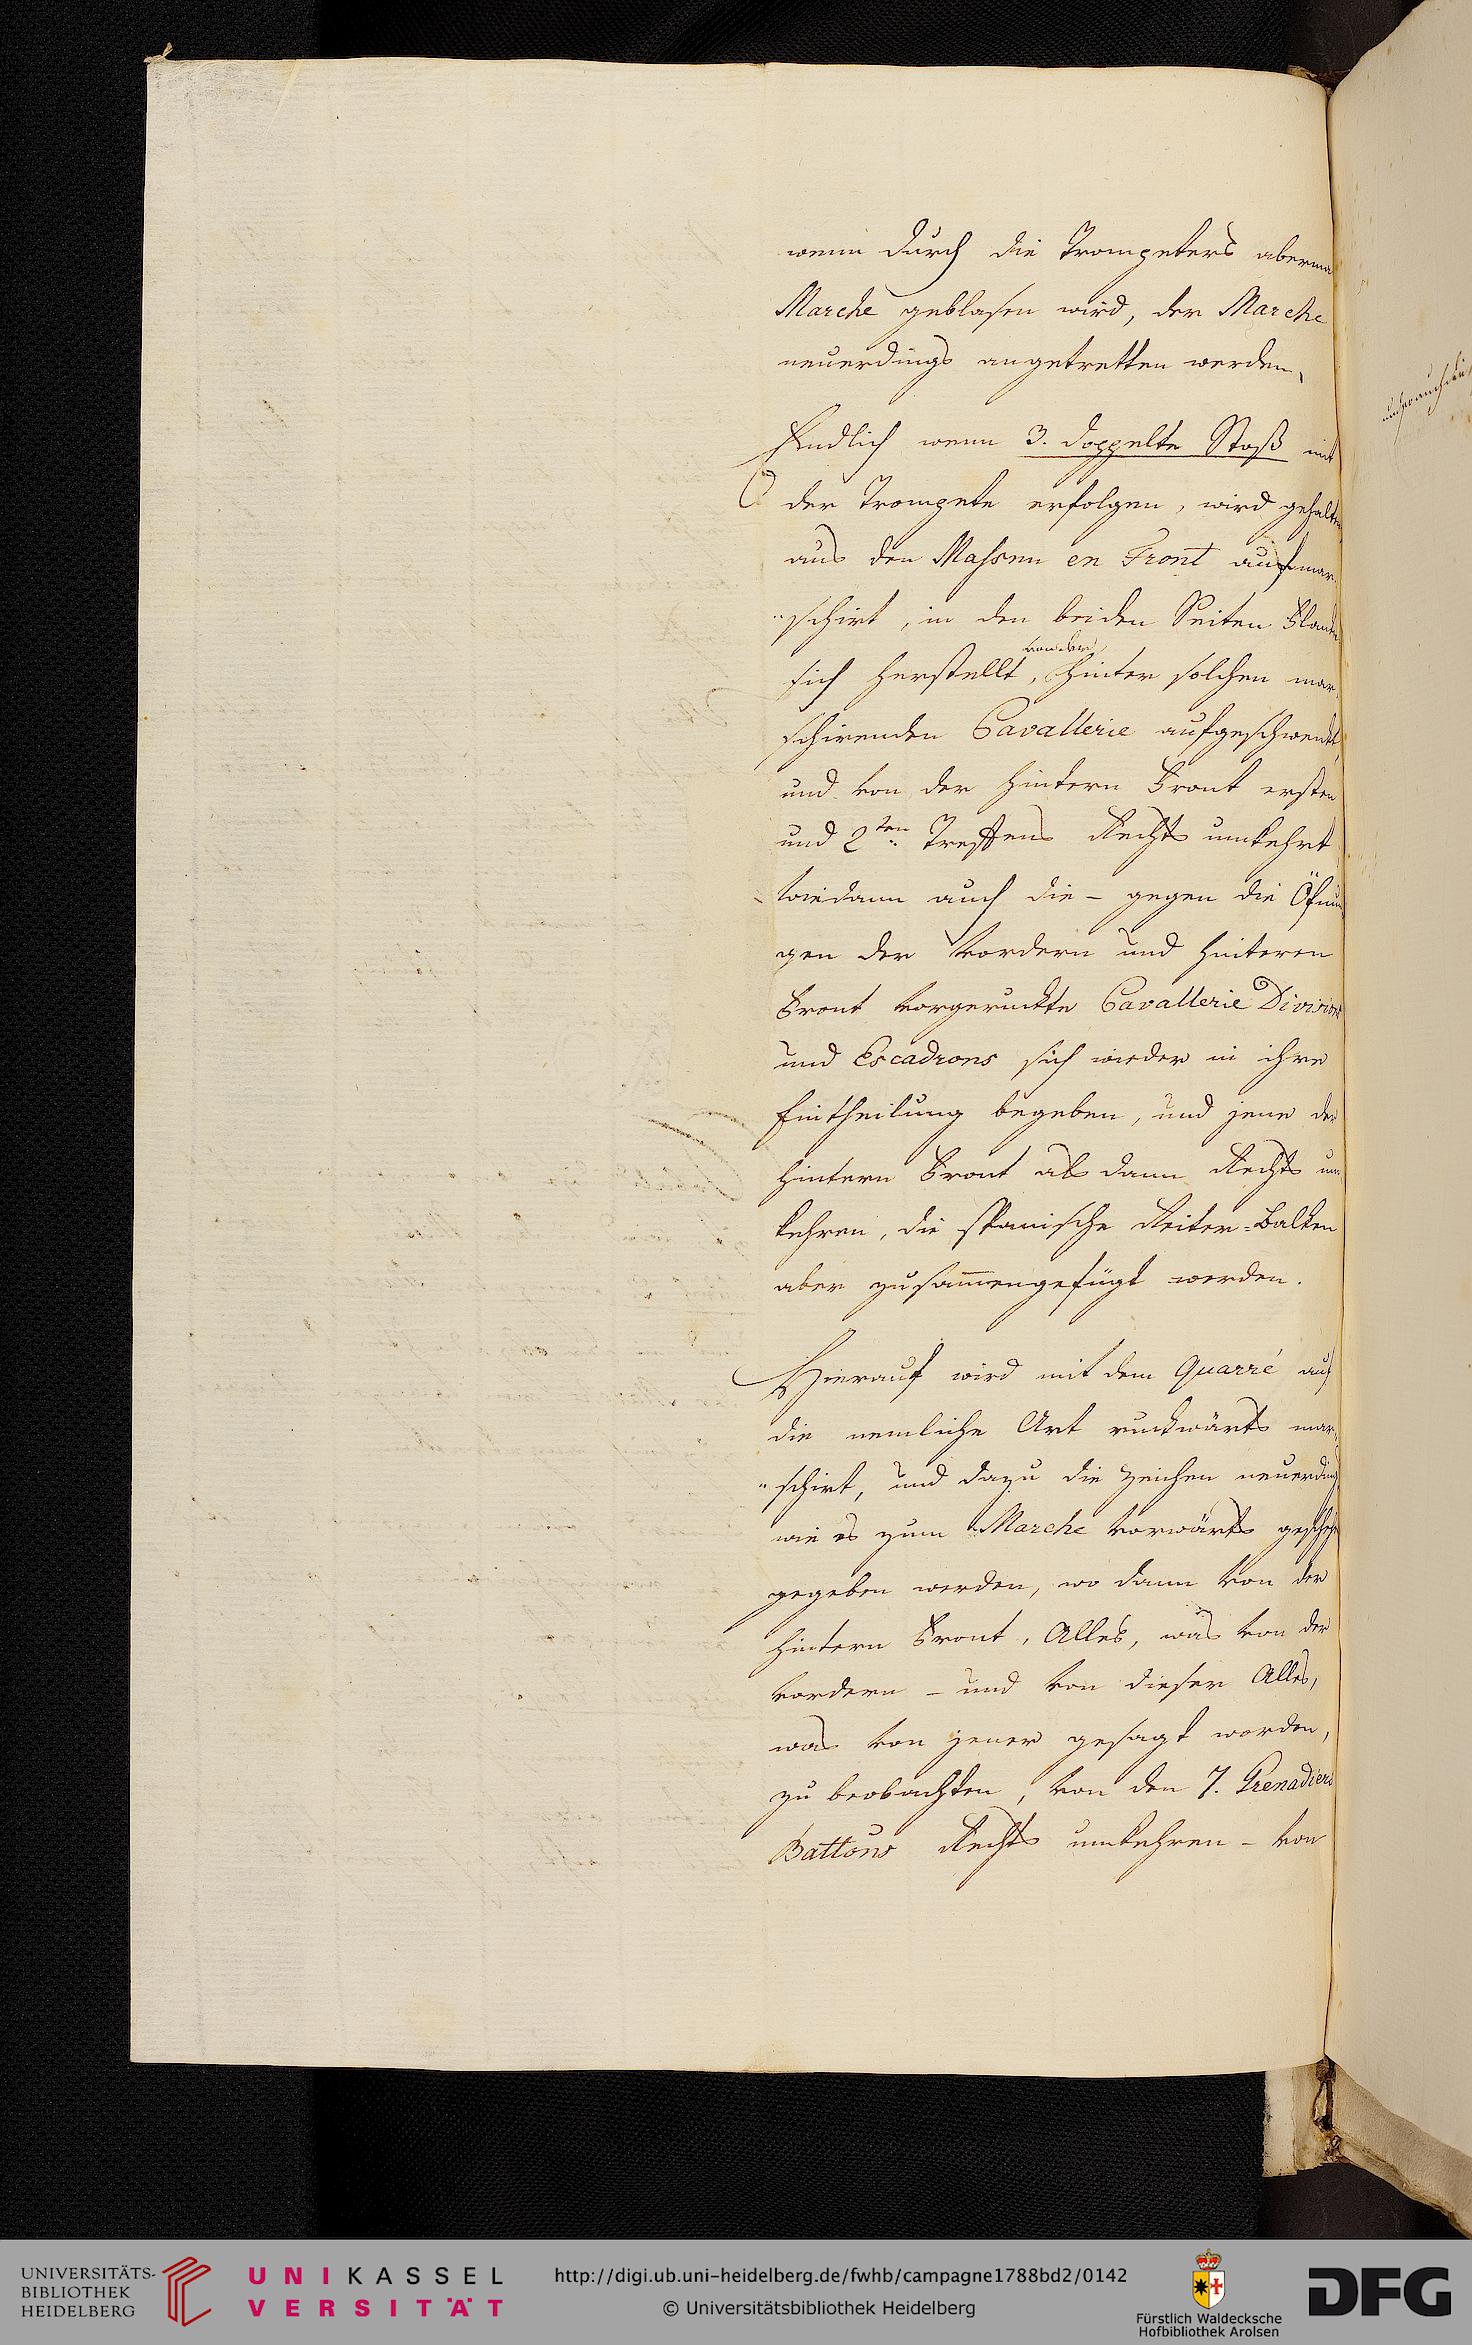 wenn durch die Trompeters aberma
Marche geblasen wird, der Marche
neuerdings angetretten werden,
Endlich wenn 3. doppelte Stoß mit
der Trompete erfolgen, wird gehalten
aus den Massen en Front aufmar-
"schirt, in den beiden Seiten Flanken
sich herstellt, hinter solchen mar-
von der
schirenden Cavallerie aufgeschwenkt,
und von der hintern Front ersten
und 2ten Treffens Rechts umkehrt
wiedann auch die - gegen die Öfnun
gen der vordern und hinteren
Front vorgeruckte Cavallerie Divisions
und Escadrons sich wieder in ihre
Eintheilung begeben, und jene der
hintern Front als dann Rechts um
kehren, die spanische Reiter=Balken
aber zusam̅engefügt werden.
Hierauf wird mit dem Quarré auf
die nemliche Art ruckwärts mar-
"schirt, und dazu die Zeichen neuerdings
wie es zum Marche vorwärts geschehen
gegeben werden, wo dann von der
hintern Front, Alles, was von der
vordern - und von dieser Alles,
was von jener gesagt worden,
zu beobachten, von den 7. Grenadiers
Battons Rechts umkehren - von
UNIVERSITÄTS-
BIBLIOTHEK
HEIDELBERG
UNIKASSEL
VERSITÄT
http://digi.ub.uni-heidelberg.de/fwhb/campagne1788bd2/0142
© Universitätsbibliothek Heidelberg
Fürstlich Waldecksche
Hofbibliothek Arolsen
DFG